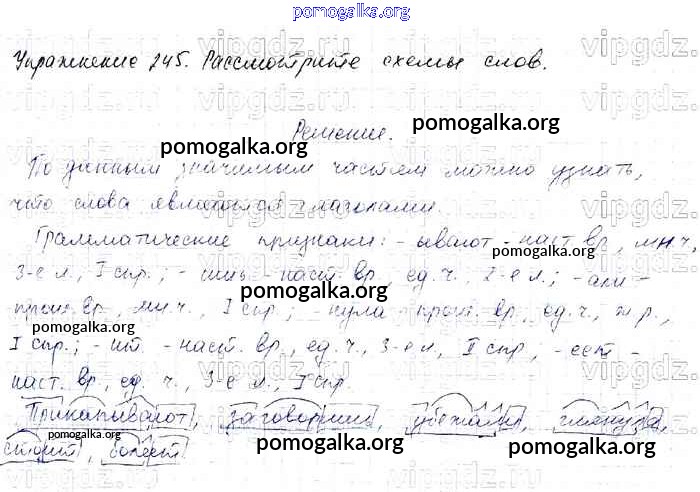 pomogalka.org
Упражнение 245. Рассмотрите схемы слов.
pomogalka.org
Решение.
pomogalka.org
По данным значимым частям можно узнать,
что слова являются глаголами.
Грамматические признаки: -ывают - наст. вр., мн.ч,
pomogalka.org
3-е л., I спр.; - ишь - наст. вр., ед. ч., 2-е л.; -али -
pomogalka.org
прош. вр., мн. ч., I спр.; - нула - прош. вр., ед. ч., ж.р.,
pomogalka.org
pomogalka.org
I спр.; - ит - наст. вр., ед. ч., 3-е л, II спр; - еет -
наст. вр., ед. ч., 3-е л., I спр.
pomogalka.org
Прикапывают, заговоришь, убежали, глянула,
pomogalka.org
pomogalka.org
pomogalka.org
стоит, болеет